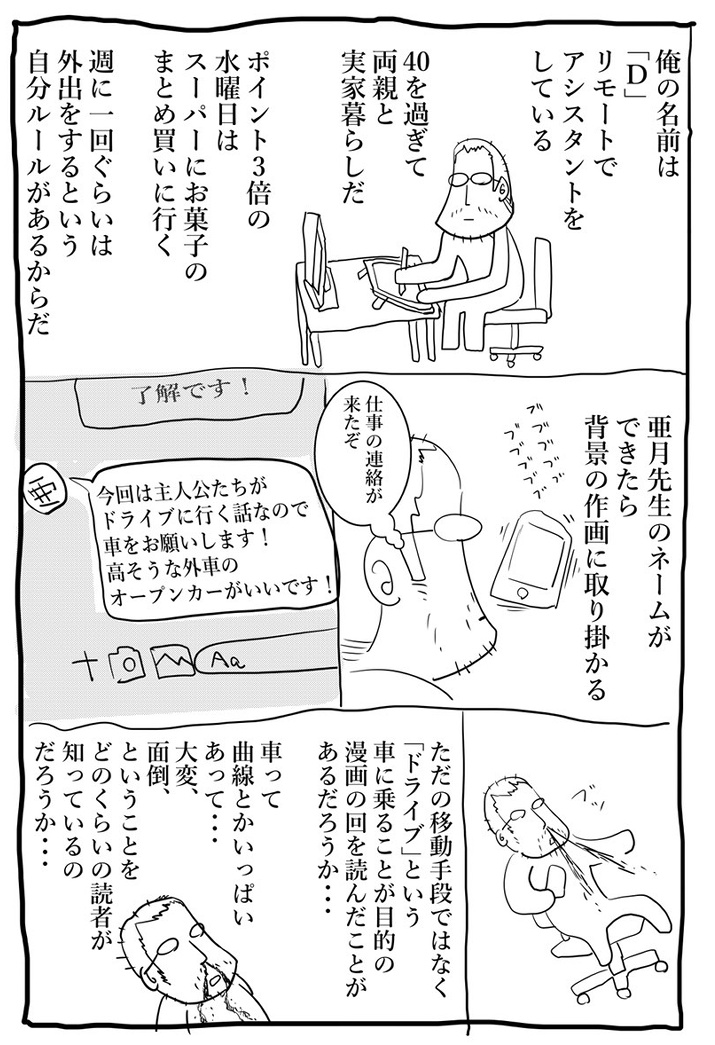 俺の名前は
「D」
リモートで
アシスタントを
している
40を過ぎて
両親と
実家暮らしだ
ポイント3倍の
水曜日は
スーパーにお菓子の
まとめ買いに行く
週に一回ぐらいは
外出をするという
自分ルールがあるからだ
亜月先生のネームが
できたら
背景の作画に取り掛かる
ブブブ
ブブブ
ブブブ
仕事の連絡が
来たぞ
了解です！
亜
今回は主人公たちが
ドライブに行く話なので
車をお願いします！
高そうな外車の
オープンカーがいいです！
Aa
ブッ
ただの移動手段ではなく
「ドライブ」という
車に乗ることが目的の
漫画の回を読んだことが
あるだろうか・・・
車って
曲線とかいっぱい
あって・・・
大変、
面倒、
ということを
どのくらいの読者が
知っているの
だろうか・・・